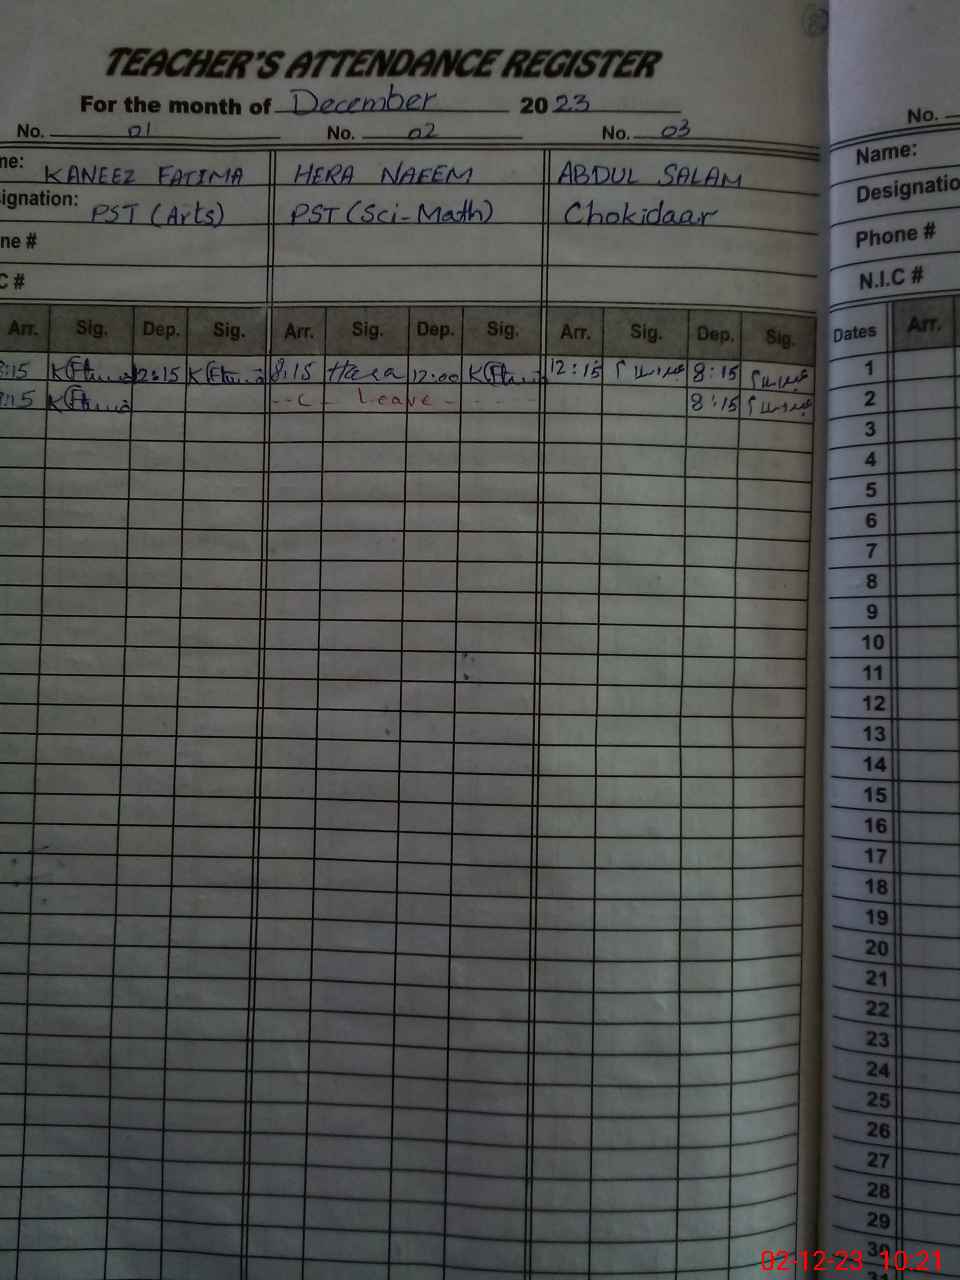 TEACHER'S ATTENDANCE REGISTER
For the month of December 2023
No. 01 No. 02 No. 03
No.
me: KANEEZ FATIMA HERA NAEEM ABDUL SALAM
Name:
ignation: PST (Arts) PST (Sci-Math) Chokidaar
Designatio
ne #
Phone #
C #
N.I.C #
Arr. Sig. Dep. Sig. Arr. Sig. Dep. Sig. Arr. Sig. Dep. Sig.
Dates Arr.
8:15 12:15 8:15 Hera 12:00 12:15 8:15
:15 C Leave 8:15
1
2
3
4
5
6
7
8
9
10
11
12
13
14
15
16
17
18
19
20
21
22
23
24
25
26
27
28
29
30
02-12-23 10:21